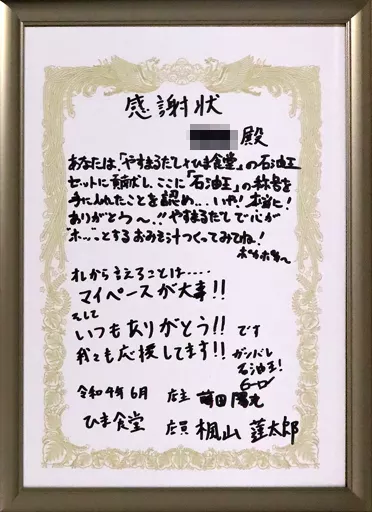 感謝状
殿
あなたは、「やすまるだし×ひま食堂」の石油王
セットに貢献し、ここに「石油王」の称号を
手に入れたことを認め…いや!本当に!
ありがとう〜!!やすまるだしで心が
"ホッ"とするおみそ汁つくってみてね!
ポカポカ〜
オレから言えることは……
マイペースが大事!!
そして
いつもありがとう!!です
我々も応援してます!!ガンバレ
石油王!
令和4年6月 店主 前田
ひま食堂 店員 梶山 蓮太郎